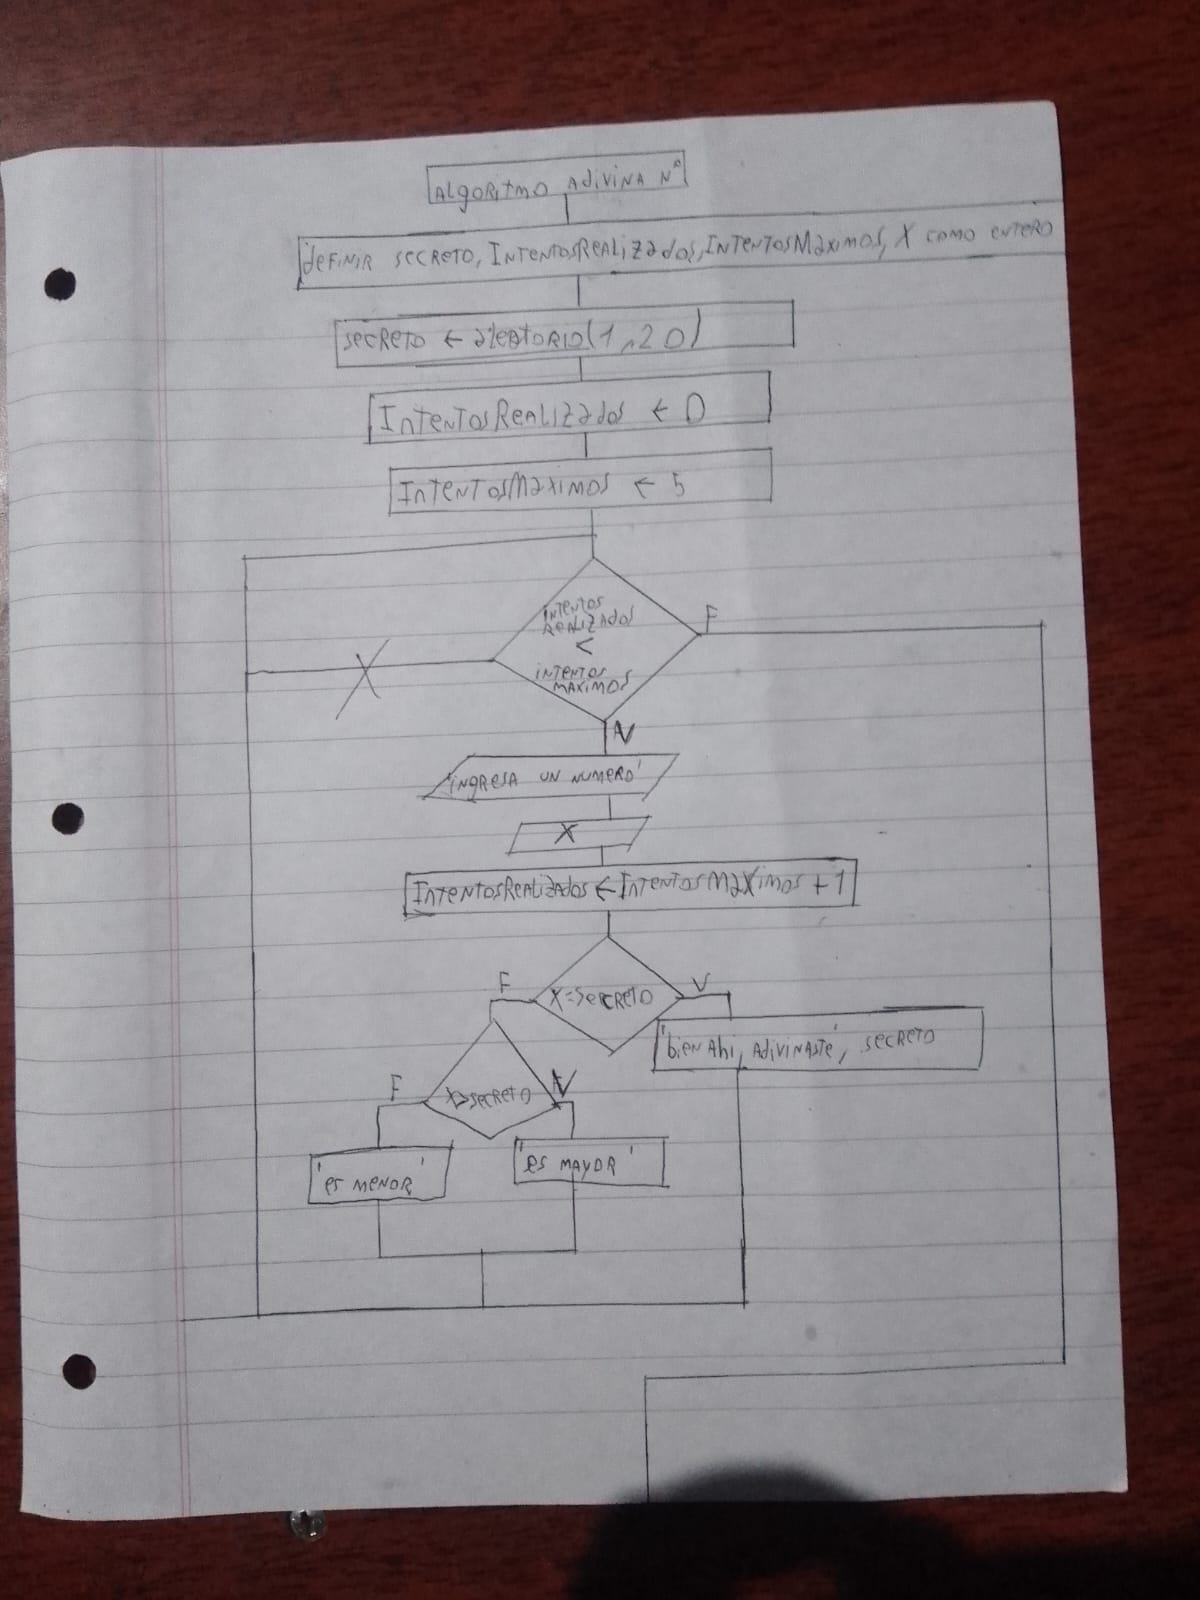 ALGORITMO ADIVINA Nº
definir secreto, IntentosRealizados, IntentosMaximos, X como entero
secreto ← aleatorio(1,20)
IntentosRealizados ← 0
IntentosMaximos ← 5
intentos
realizados
<
intentos
maximos
F
V
'ingresa un numero'
X
IntentosRealizados ← IntentosMaximos + 1
F
X=secreto
V
'bien ahi, adivinaste', secreto
F
X>secreto
V
'es menor'
'es mayor'